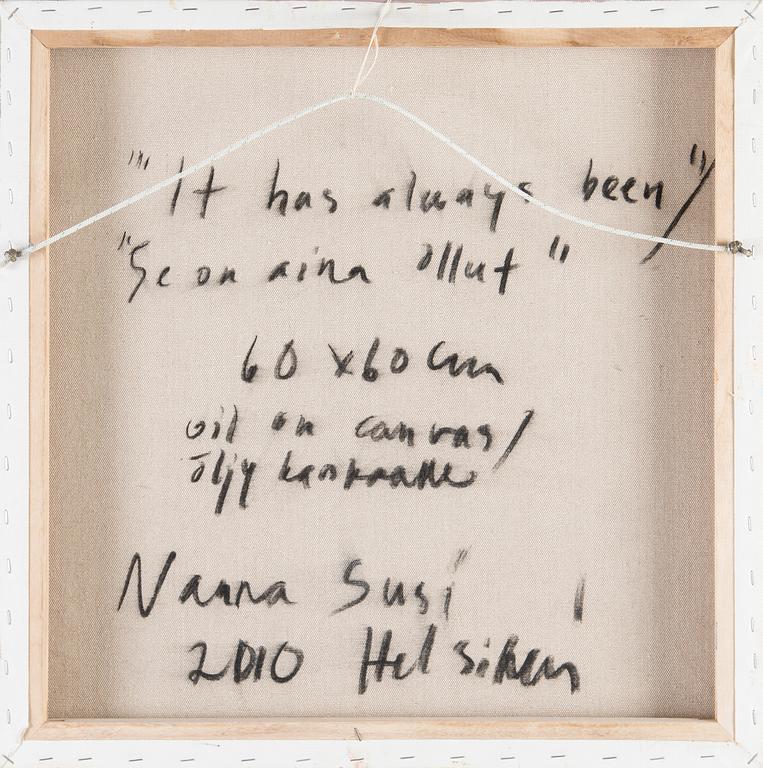 "It has always been"/
"Se on aina ollut"
60 x 60 cm
oil on canvas/
öljy kankaalle
Nanna Susi
2010 Helsinki